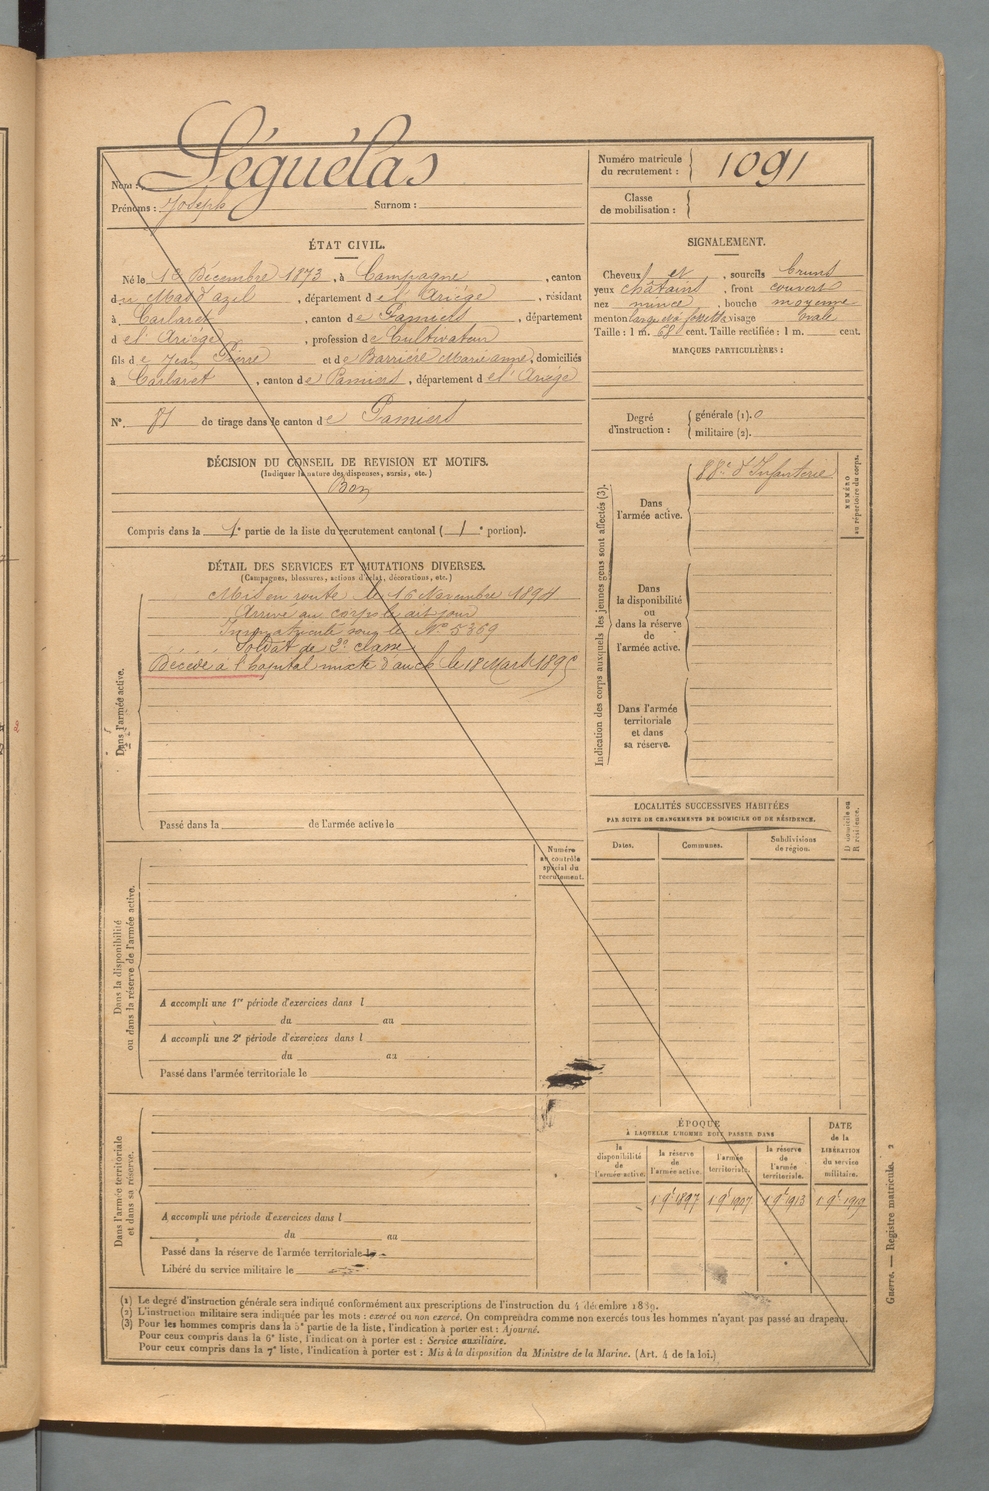 Nom : Séguélas
Prénoms : Joseph Surnom :
Numéro matricule
du recrutement : 1091
Classe
de mobilisation :
ÉTAT CIVIL.
Né le Décembre 1873, à Campagne, canton
du Mas d'azil, département de l'Ariège, résidant
à Carlaret, canton de Pamiers, département
de l'Ariège, profession de Cultivateur
fils de Jean Pierre et de Barrière Marianne, domiciliés
à Carlaret, canton de Pamiers, département de l'Ariège
N° 81 de tirage dans le canton de Pamiers
DÉCISION DU CONSEIL DE REVISION ET MOTIFS.
(Indiquer la nature des dispenses, sursis, etc.)
Bon
Compris dans la 1e partie de la liste du recrutement cantonal ( 1e portion).
DÉTAIL DES SERVICES ET MUTATIONS DIVERSES.
(Campagnes, blessures, actions d'éclat, décorations, etc.)
Mis en route le 16 Novembre 1894
Arrivé au corps le dit jour
Immatriculé sous le N° 5369
Soldat de 2e classe
Décédé à l'hôpital mixte d'auch le 18 Mars 1895
Dans l'armée active.
Passé dans la de l'armée active le
Numéro
au contrôle
spécial du
recrutement.
Dans la disponibilité
ou dans la réserve de l'armée active.
A accompli une 1re période d'exercices dans l
du au
A accompli une 2e période d'exercices dans l
du au
Passé dans l'armée territoriale le
Dans l'armée territoriale
et dans sa réserve.
A accompli une période d'exercices dans l
du au
Passé dans la réserve de l'armée territoriale le
Libéré du service militaire le
SIGNALEMENT.
Cheveux et, sourcils bruns
yeux châtains, front couvert
nez mince, bouche moyenne
menton large et à fossette visage ovale
Taille : 1 m. 68 cent. Taille rectifiée : 1 m. cent.
MARQUES PARTICULIÈRES :
Degré
d'instruction :
générale (1). 0
militaire (2).
Indication des corps auxquels les jeunes gens sont affectés (3).
Dans
l'armée active.
88e d'Infanterie
NUMÉRO
au répertoire du corps.
Dans
la disponibilité
ou
dans la réserve
de
l'armée active.
Dans l'armée
territoriale
et dans
sa réserve.
LOCALITÉS SUCCESSIVES HABITÉES
PAR SUITE DE CHANGEMENTS DE DOMICILE OU DE RÉSIDENCE.
Dates. Communes. Subdivisions
de région.
D domicile ou
R résidence.
ÉPOQUE
À LAQUELLE L'HOMME DOIT PASSER DANS
la
disponibilité
de
l'armée active.
la réserve
de
l'armée active.
l'armée
territoriale.
la réserve
de
l'armée
territoriale.
DATE
de la
LIBÉRATION
du service
militaire.
1 9e 1897 1 9e 1907 1 9e 1913 1 9e 1919
(1) Le degré d'instruction générale sera indiqué conformément aux prescriptions de l'instruction du 4 décembre 1889.
(2) L'instruction militaire sera indiquée par les mots : exercé ou non exercé. On comprendra comme non exercés tous les hommes n'ayant pas passé au drapeau.
(3) Pour les hommes compris dans la 5e partie de la liste, l'indication à porter est : Ajourné.
Pour ceux compris dans la 6e liste, l'indication à porter est : Service auxiliaire.
Pour ceux compris dans la 7e liste, l'indication à porter est : Mis à la disposition du Ministre de la Marine. (Art. 4 de la loi.)
Guerre. — Registre matricule. 2